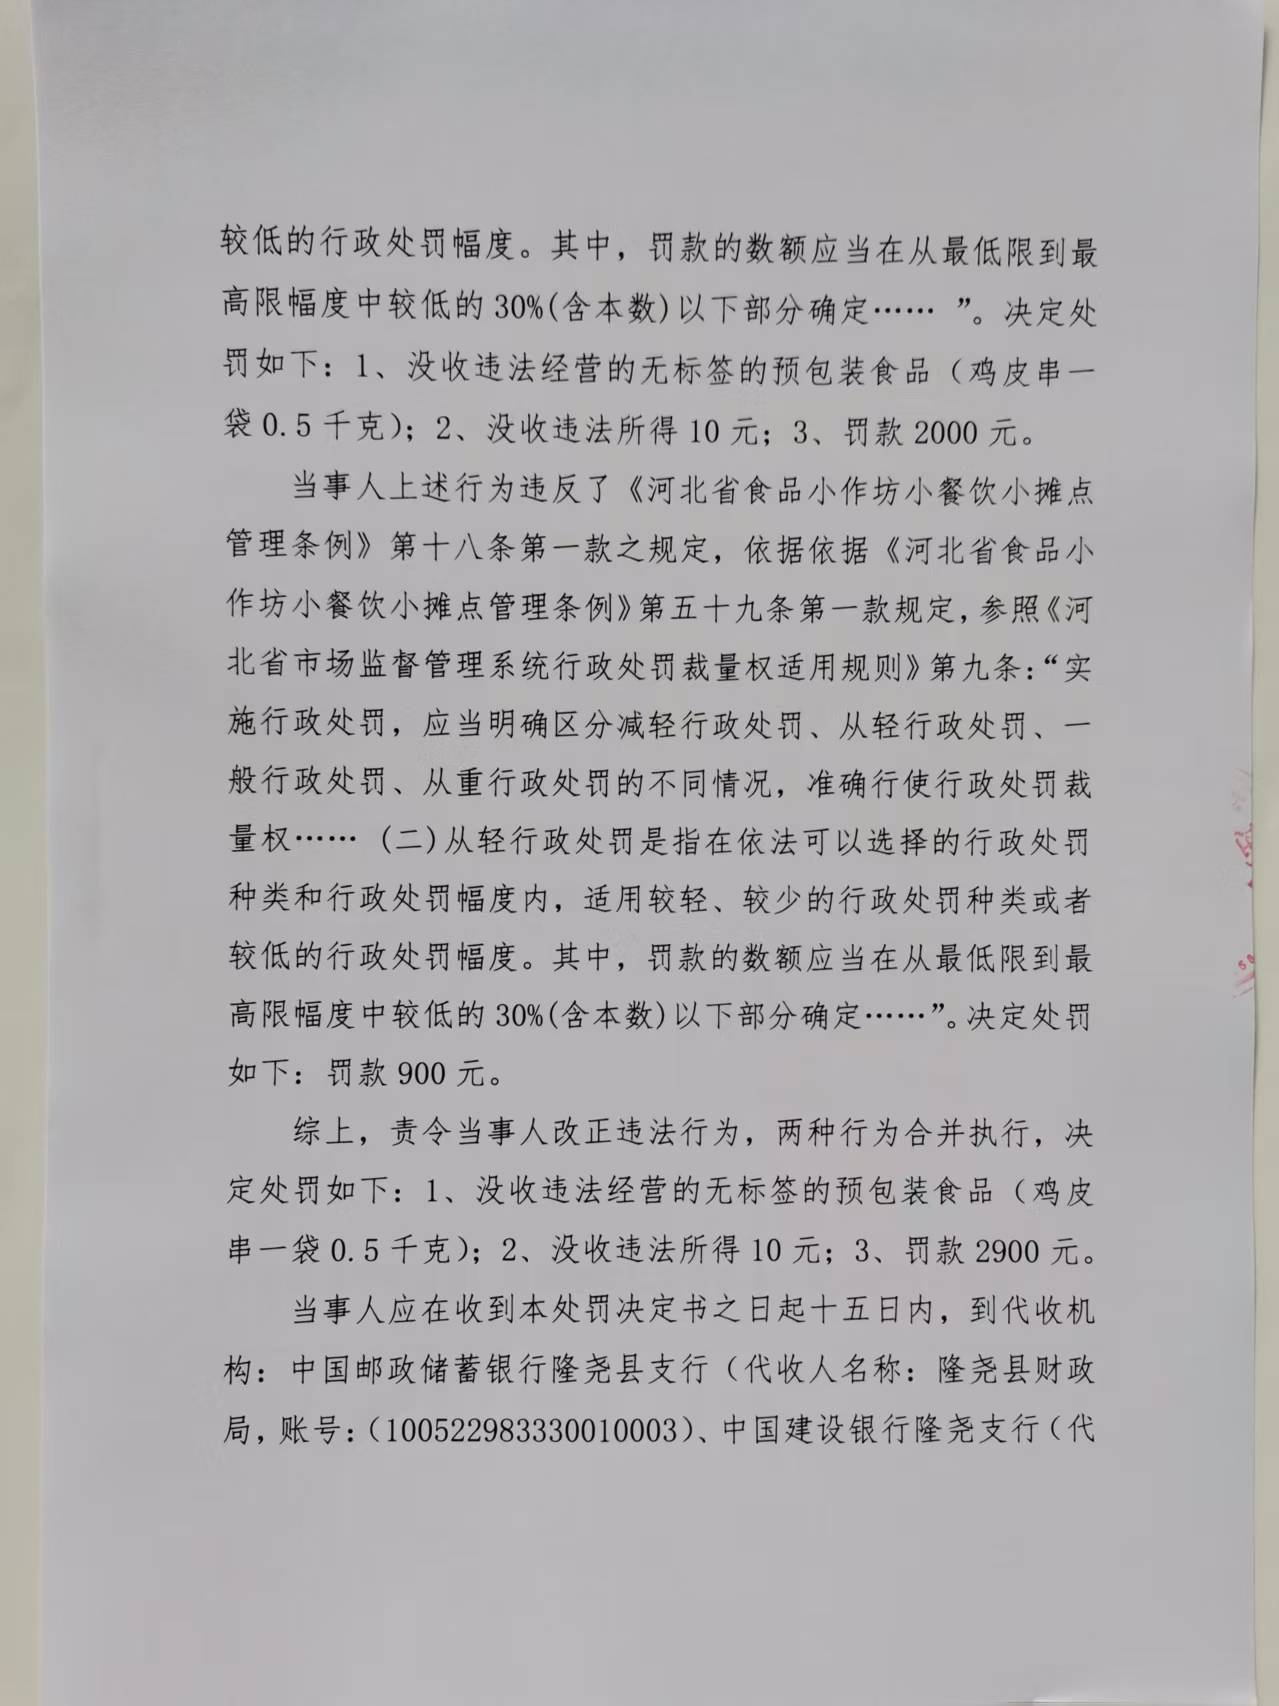 较低的行政处罚幅度。其中，罚款的数额应当在从最低限到最
高限幅度中较低的 30%(含本数)以下部分确定…… ”。决定处
罚如下：1、没收违法经营的无标签的预包装食品（鸡皮串一
袋 0.5 千克）；2、没收违法所得 10 元；3、罚款 2000 元。
当事人上述行为违反了《河北省食品小作坊小餐饮小摊点
管理条例》第十八条第一款之规定，依据依据《河北省食品小
作坊小餐饮小摊点管理条例》第五十九条第一款规定，参照《河
北省市场监督管理系统行政处罚裁量权适用规则》第九条：“实
施行政处罚，应当明确区分减轻行政处罚、从轻行政处罚、一
般行政处罚、从重行政处罚的不同情况，准确行使行政处罚裁
量权…… (二)从轻行政处罚是指在依法可以选择的行政处罚
种类和行政处罚幅度内，适用较轻、较少的行政处罚种类或者
较低的行政处罚幅度。其中，罚款的数额应当在从最低限到最
高限幅度中较低的 30%(含本数)以下部分确定……”。决定处罚
如下：罚款 900 元。
综上，责令当事人改正违法行为，两种行为合并执行，决
定处罚如下：1、没收违法经营的无标签的预包装食品（鸡皮
串一袋 0.5 千克）；2、没收违法所得 10 元；3、罚款 2900 元。
当事人应在收到本处罚决定书之日起十五日内，到代收机
构：中国邮政储蓄银行隆尧县支行（代收人名称：隆尧县财政
局，账号：（100522983330010003）、中国建设银行隆尧支行（代